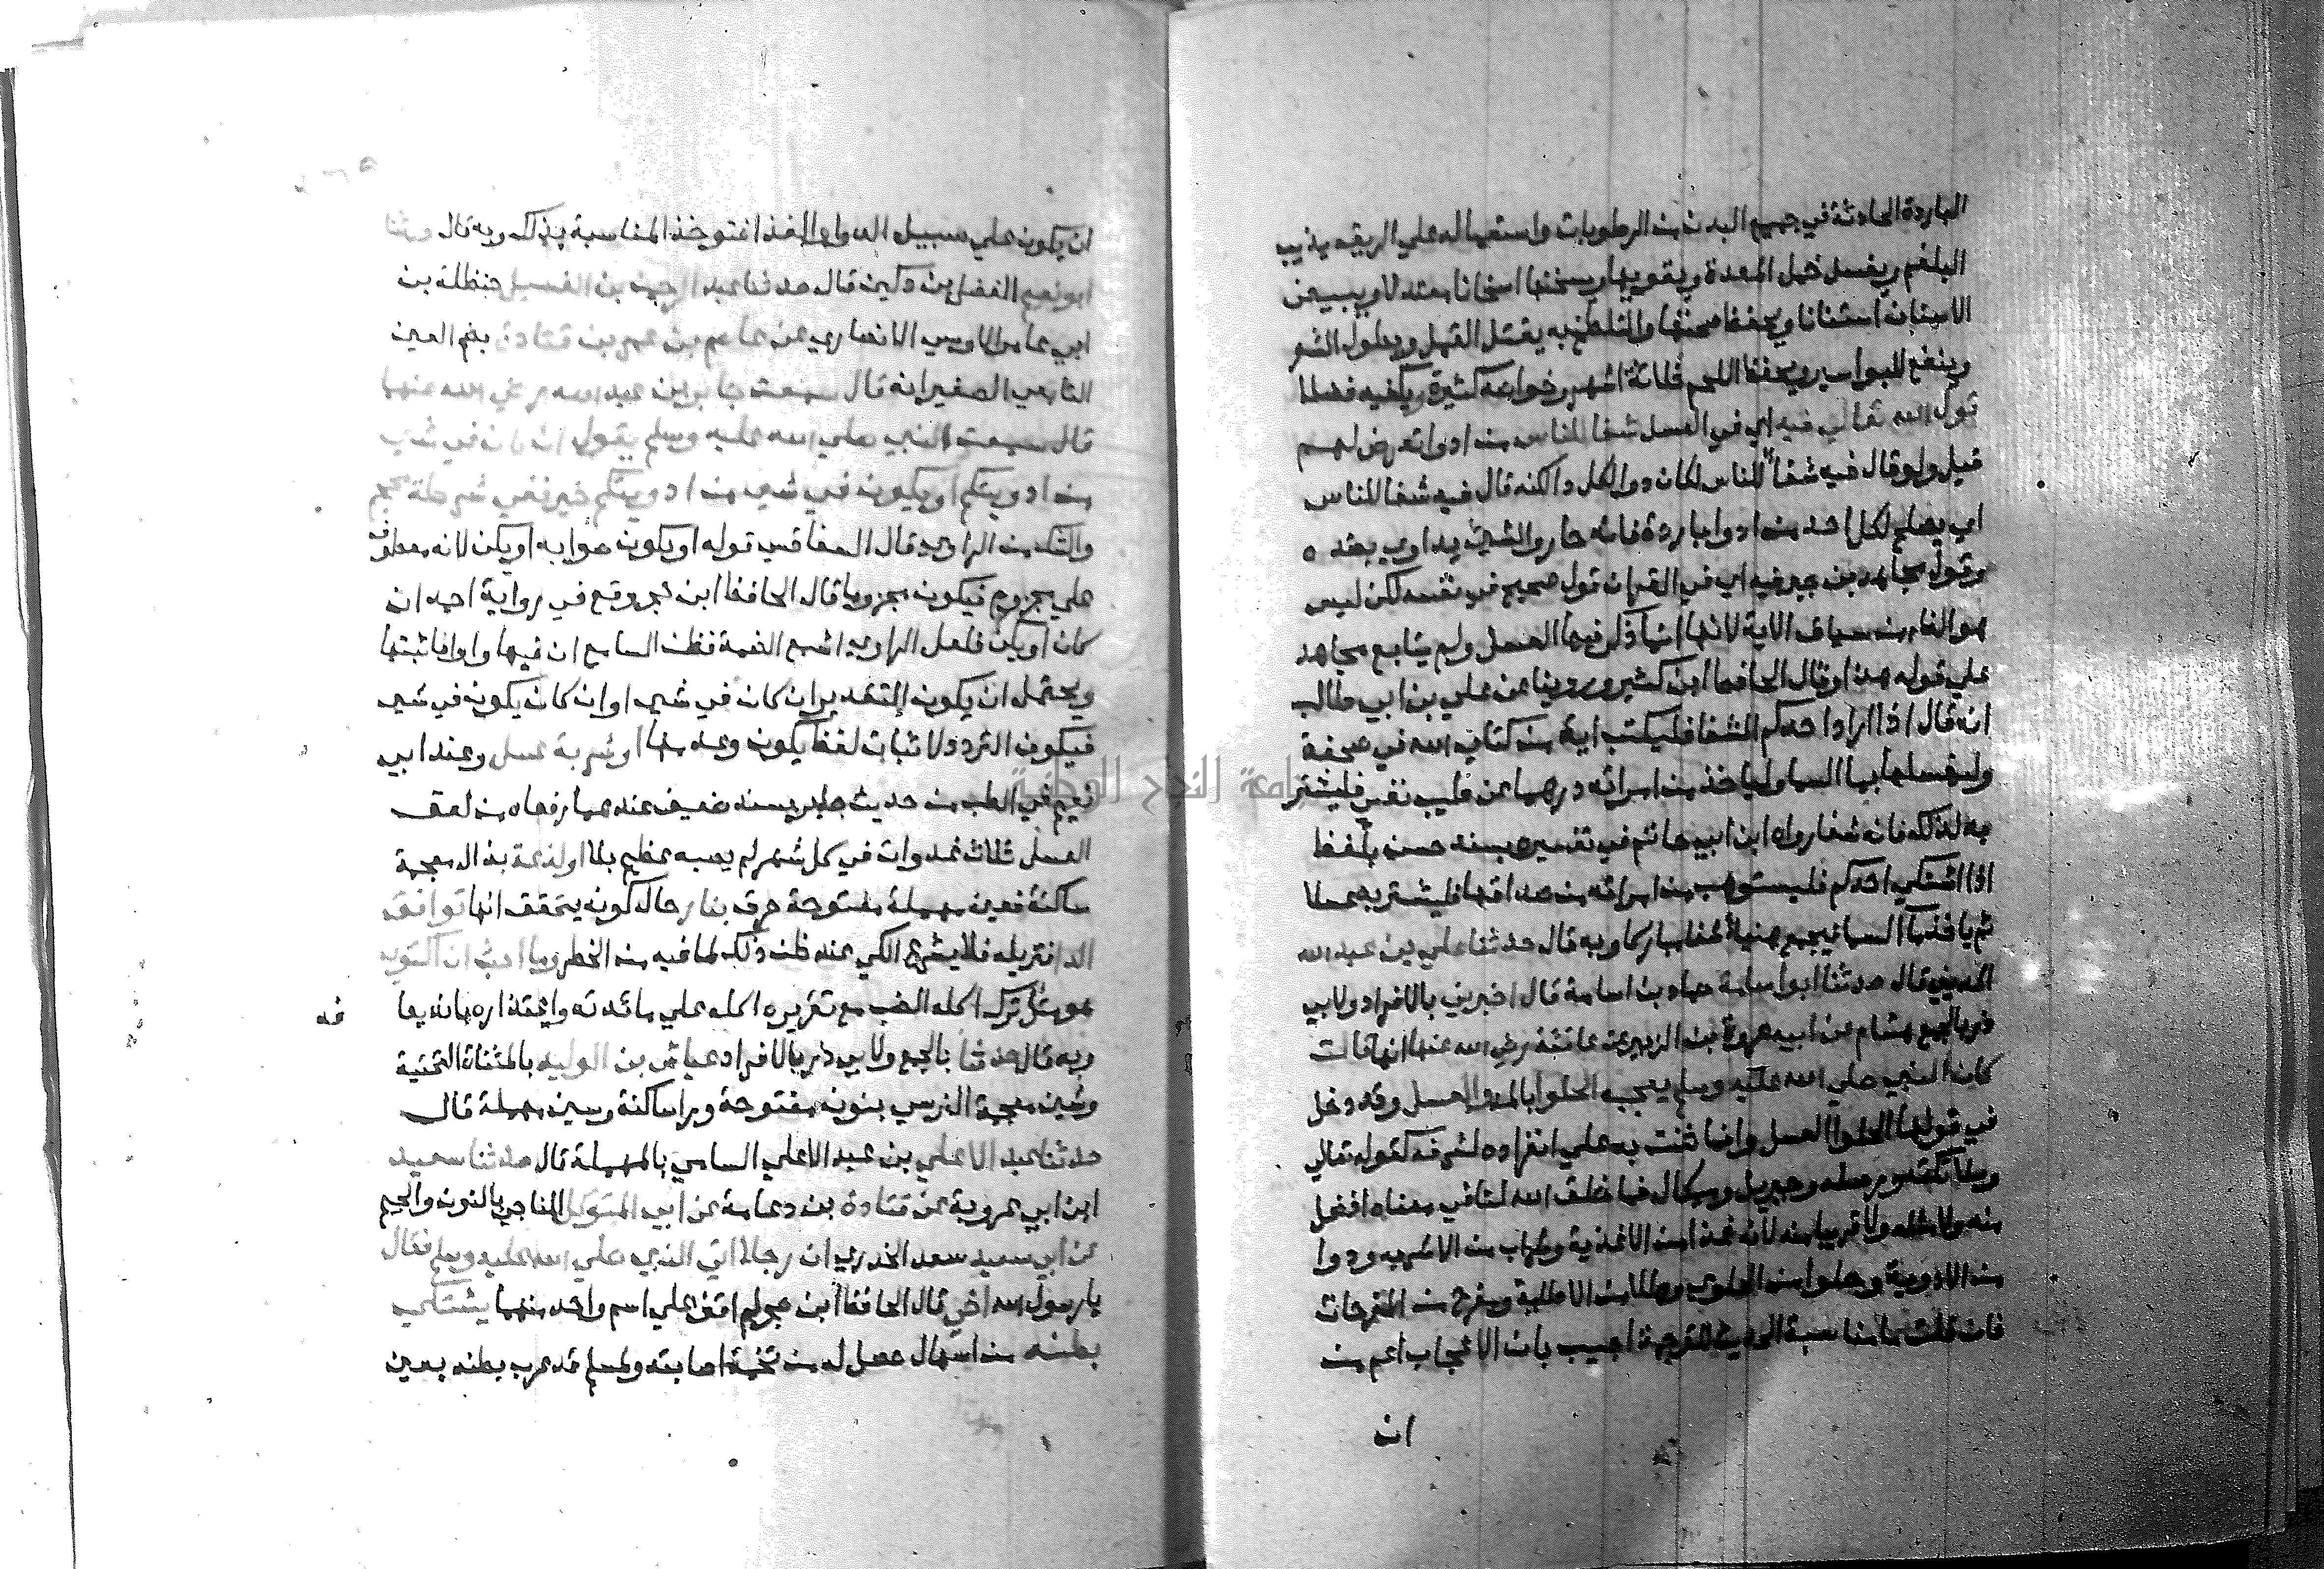 الباردة الحادثة في جميع البدن من الرطوبات واستعماله علي الريق يذيب
البلغم ويغسل خمل المعدة ويقويها ويسخنها اسخانا معتدلا ويبيض
الاسنان استنانا ويحفظ صحتها والتلطخ به يقتل القمل ويطول الشعر
وينفع للبواسير ويحفظ اللحم ثلاثة اشهر وخواصه كثيرة ويكفيه فضلا
قول الله تعالي فيه اي في العسل شفا للناس من ادوا تعرض لهم
قيل ولو قال فيه شفا للناس لكان دوا لكل داء لكنه قال فيه شفا للناس
اي يصلح لكل احد من ادوا باردة فانه حار والشي يداوي بضده
وقول مجاهد بن جبر فيه اي في القران قول صحيح في نفسه لكن ليس
هو الظاهر من سياق الاية لانها انما ذكر فيها العسل ولم يتابع مجاهد
علي قوله هذا وقال الحافظ ابن كثير وروينا عن علي بن ابي طالب
انه قال اذا اراد احدكم الشفا فليكتب اية من كتاب الله في صحفة
وليغسلها بما السما ولياخذ من امراته درهما عن طيب نفس فليشتر
به لذلك فانه شفا رواه ابن ابي حاتم في تفسيره بسند حسن بلفظ
اذا اشتكي احدكم فليستوهب من امراته من صداقها فليشتر به عسلا
ثم ياخذ ما السما فيجمع هنيئا شفا مباركا وبه قال حدثنا علي بن عبد الله
المديني قال حدثنا ابو اسامة حماد بن اسامة قال اخبرني بالافراد ولابي
ذر بالجمع هشام عن ابيه عروة بن الزبير عن عائشة رضي الله عنها انها قالت
كان النبي صلي الله عليه وسلم يعجبه الحلوا بالمد والعسل وقد دخل
في قولها الحلوا العسل وانما ثنت به علي انفراده لشرفه كقوله تعالي
وملائكته ورسله وجبريل وميكال فما خلق الله لنا في معناه افضل
منه ولا مثله ولا قريبا منه لانه غذا من الاغذية وشراب من الاشربه ودوا
من الادوية وحلوا من الحلوي وطلا من الاطلية ومفرح من المفرحات
فان قلت ما مناسبة الحديث للترجمة اجيب بان الاعجاب اعم من
ان
ان يكون علي سبيل الدوا والغذا فتوخذ المناسبة بذلك وبه قال حدثنا
ابو نعيم الفضل بن دكين قال حدثنا عبد الرحمن بن الغسيل حنظلة بن
ابي عامر الاوسي الانصاري عن عاصم بن عمر بن قتادة بضم العين
التابعي الصغير انه قال سمعت جابر بن عبد الله رضي الله عنهما
قال سمعت النبي صلي الله عليه وسلم يقول ان كان في شي
من ادويتكم او يكون في شي من ادويتكم خير ففي شرطة محجم
والشك من الراوي قال السفاقسي قوله او يكون صوابه او يكن لانه معطوف
علي مجزوم فيكون مجزوما قال الحافظ ابن حجر وقع في رواية احمد ان
كان او يكن فلعل الراوي اشبع الضمة فظن السامع ان فيها واوا فاثبتها
ويحتمل ان يكون التقدير ان كان في شي او ان كان يكون في شي
فيكون التردد لاثبات لفظ يكون وعدمها او شربة عسل وعند ابي
نعيم في الطب من حديث جابر بسند ضعيف عندهما رفعاه من لعق
العسل ثلاث غدوات في كل شهر لم يصبه عظيم بلا او لذعة بذال معجمة
ساكنة فعين مهملة مفتوحة حرق بنار حال كونه يتحقق انها توافق
الدا فتزيله فلا يشرع الكي عند ظن ذلك لما فيه من الخطر وما احب ان اكتوي
هو مثل ترك اكله الضب مع تقريره اكله علي مائدته واعتذاره بانه يعا
فه
وبه قال حدثنا بالجمع ولابي ذر بالافراد عياش بن الوليد بالمثناة التحتية
وشين معجمة النرسي بنون مفتوحة وراساكنة وسين مهملة قال
حدثنا عبد الاعلي بن عبد الاعلي السامي بالمهملة قال حدثنا سعيد
ابن ابي عروبة عن قتادة بن دعامة عن ابي المتوكل الناجي بالنون والجيم
عن ابي سعيد سعد الخدري ان رجلا اتي النبي صلي الله عليه وسلم فقال
يا رسول الله اخي قال الحافظ ابن حجر لم اقف علي اسم واحد منهما يشتكي
بطنه من اسهال حصل له من تخمة اصابته ولمسلم قد عرب بطنه بعين
جامعة النجاح الوطنية